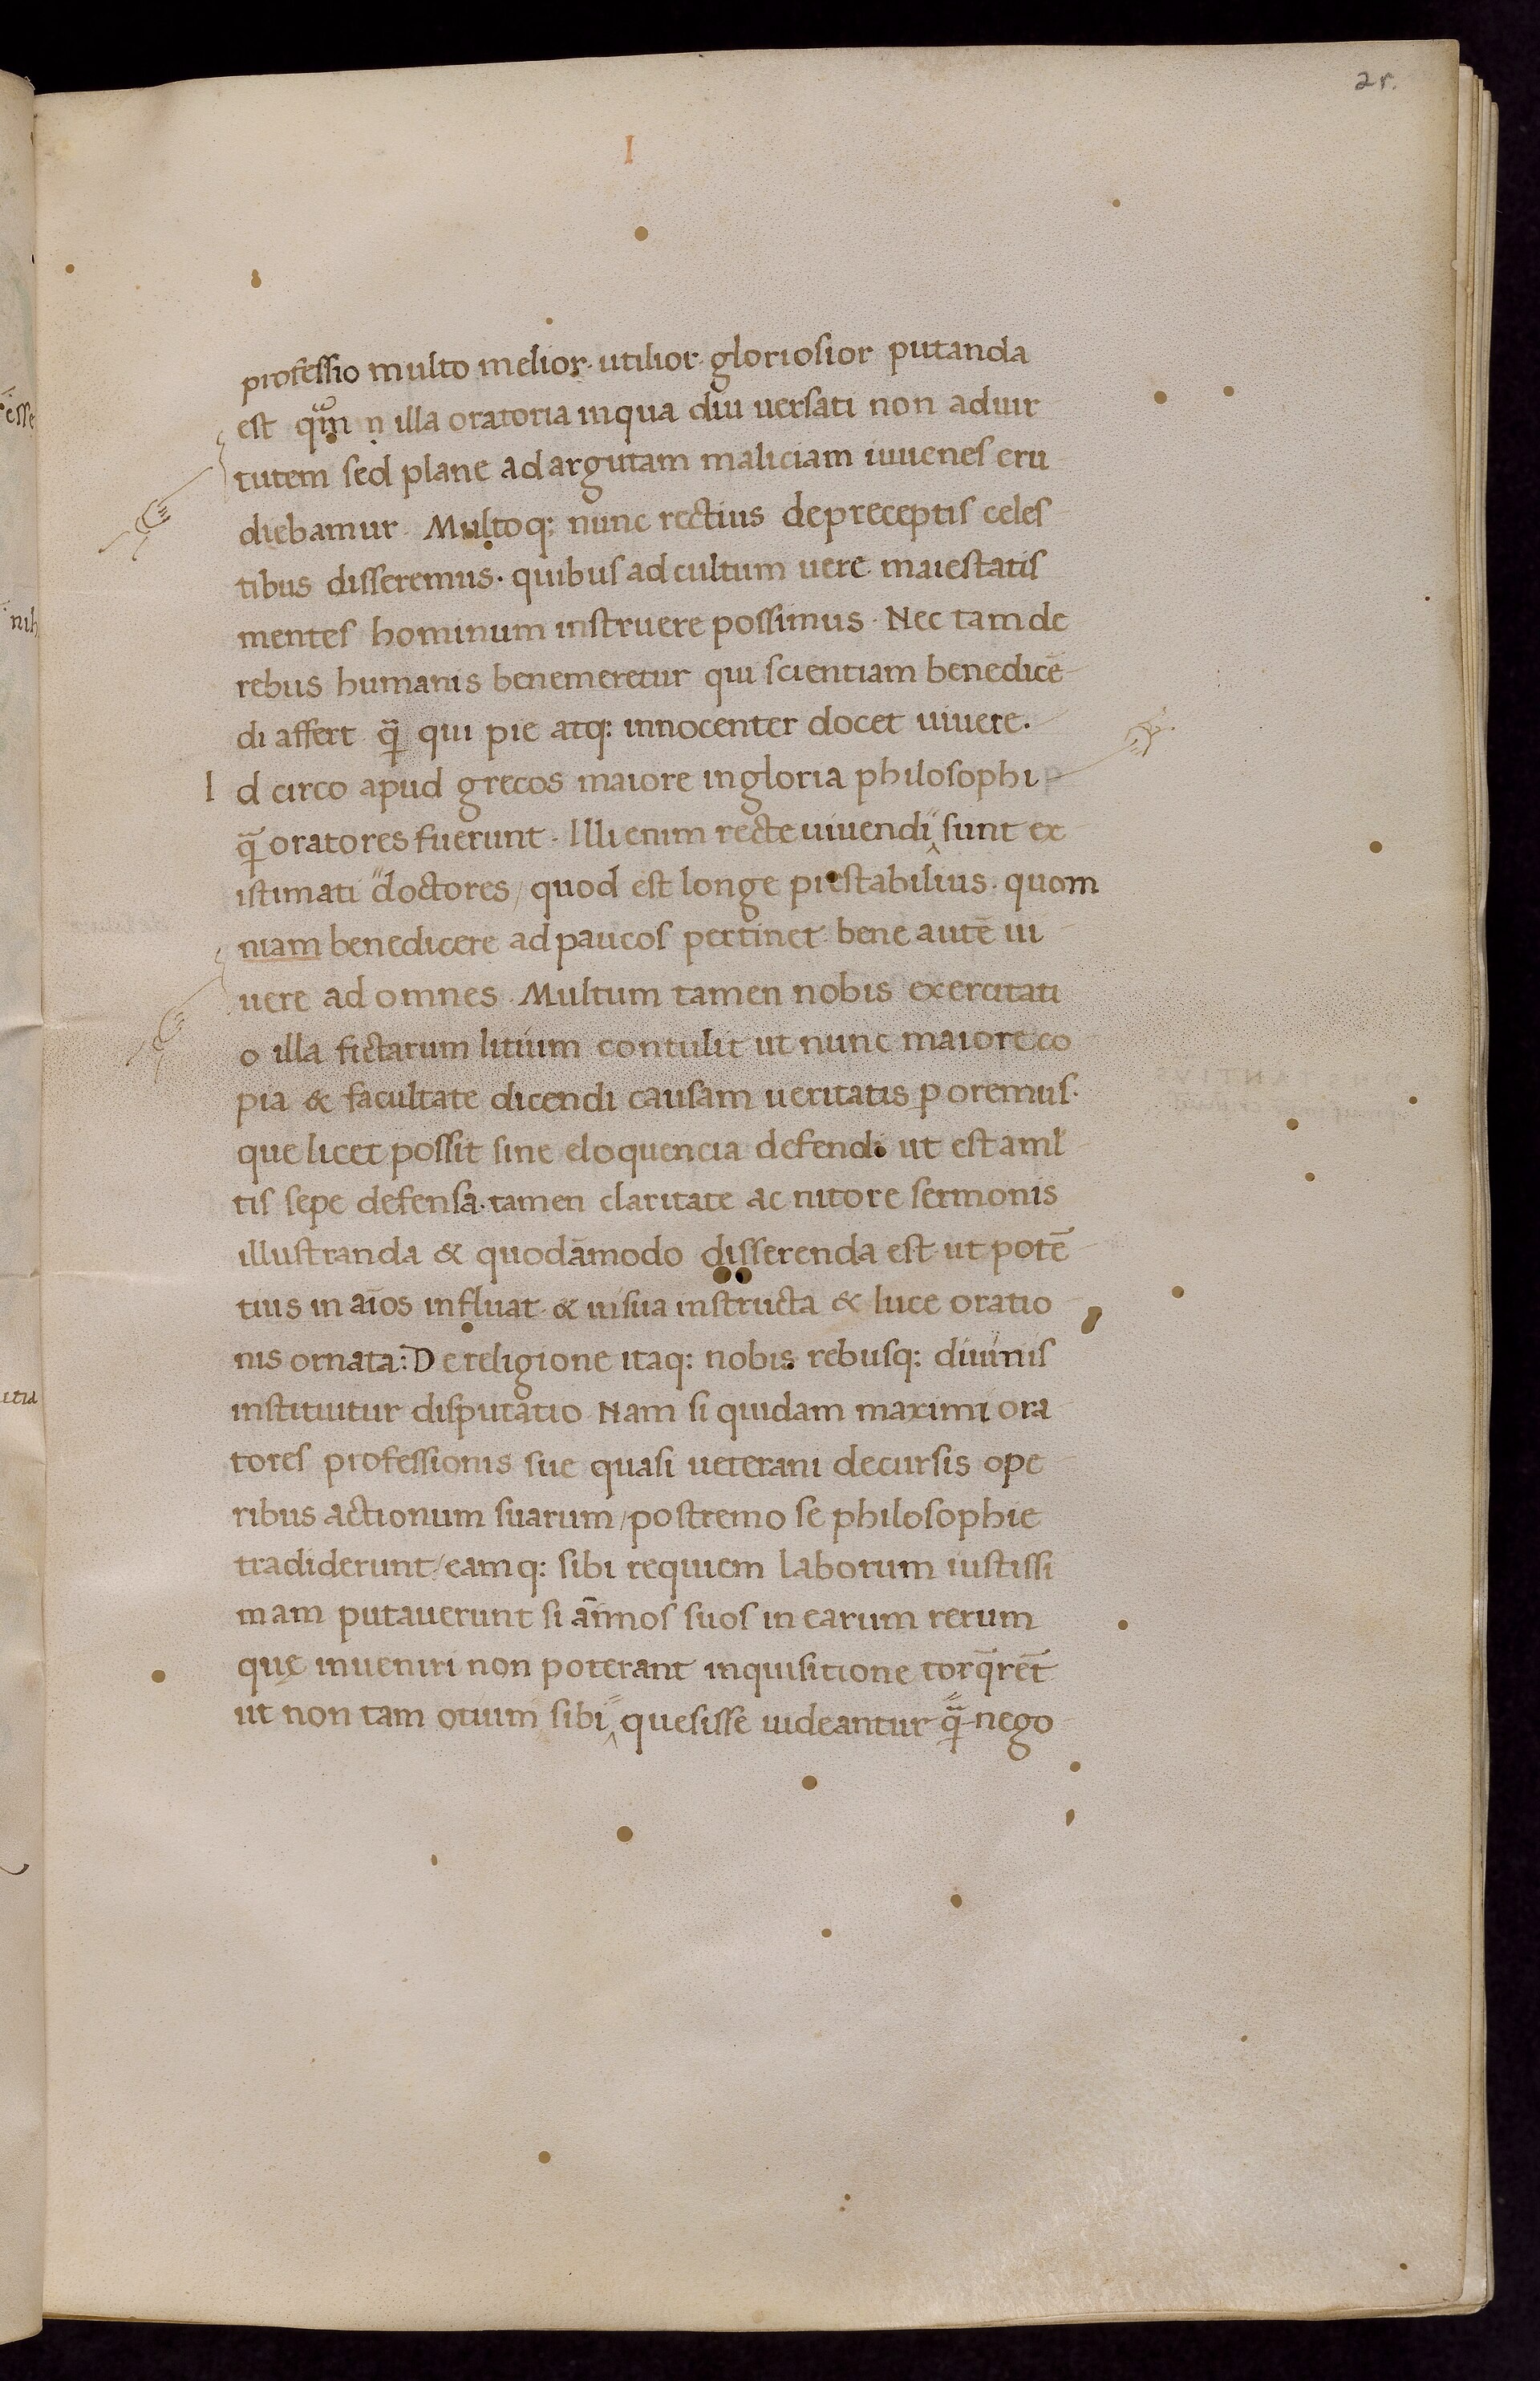 2r.
I
professio multo melior· utilior· gloriosior putanda
est illa oratoria inqua diu uersati non aduir
tutem sed plane ad argutam maliciam iuuenes eru
diebamur· Multoq: nunc rectius depreceptis celes
tibus disseremus· quibus ad cultum uere maiestatis
mentes hominum instruere possimus· Nec tam de
rebus humanis benemeretur qui scientiam benedicē
di affert q̄ qui pie atq: innocenter docet uiuere·
I d circo apud grecos maiore in gloria philosophi
q̄ oratores fuerunt· Illi enim recte uiuendi sunt ex
istimati doctores/ quod est longe prestabilius· quom
niam benedicere ad paucos pertinet· bene autē ui
uere ad omnes· Multum tamen nobis exercitati
o illa fictarum litium contulit ut nunc maiore co
pia & facultate dicendi causam ueritatis poremus·
que licet possit sine eloquencia defendi ut est aml̄
tis sepe defensa· tamen claritate ac nitore sermonis
illustranda & quodāmodo disserenda est· ut potē
tius in aīos influat· & ui sua instructa & luce oratio
nis ornata: De religione itaq: nobis rebusq: diuinis
instituitur disputatio· Nam si quidam maximi ora
tores professionis sue quasi ueterani decursis ope
ribus actionum suarum/ postremo se philosophie
tradiderunt/ eamq: sibi requiem laborum iustissi
mam putauerunt si āīmos suos in earum rerum
quę inueniri non poterant inquisitione torq̄rēt
ut non tam otium sibi quesisse uideantur q̄ nego